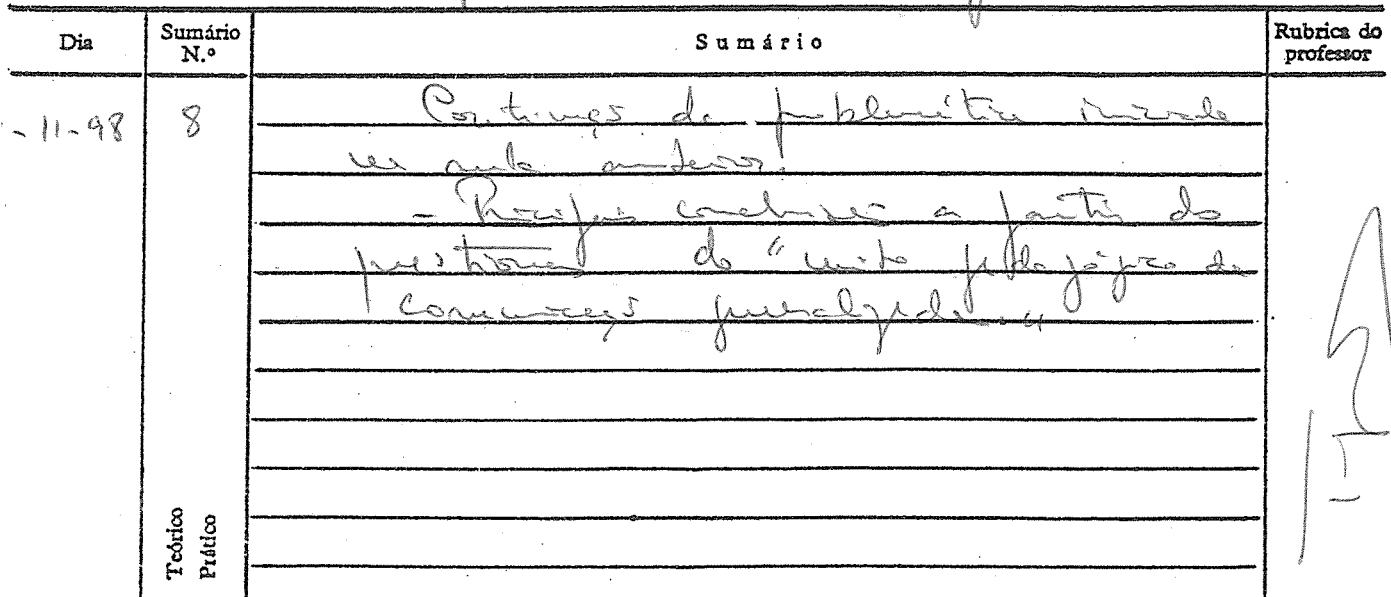 Dia Sumário N.º Sumário Rubrica do professor
-11-98 8 Continuação da problemática iniciada
na aula anterior.
- Principais conclusões a partir do
questionar do "mito pedagógico da
comunicação generalizada..."
Teórico
Prático